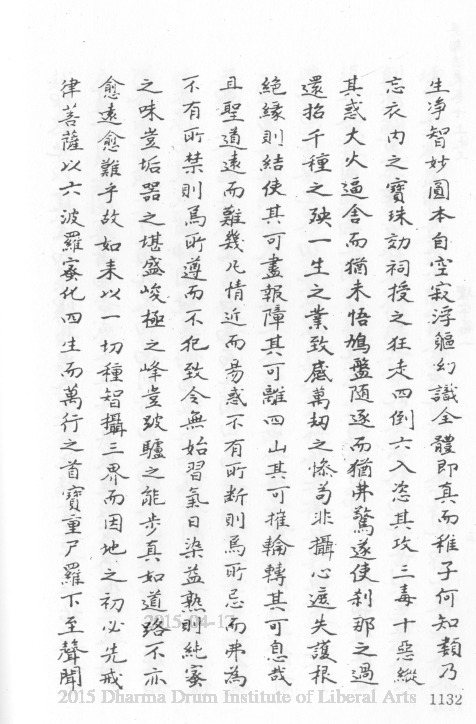 生净智妙圓本自空寂浮軀幻識全體即真而稚子何知類乃
忘衣內之寶珠訪祠授之狂走四倒六入恣其攻三毒十惡縱
其惑大火逼舍而猶未悟鳩盤随逐而猶弗驚遂使刹那之過
還招千種之殃一生之業致感萬劫之惨苟非攝心遮失護根
絕緣則結使其可盡報障其可離四山其可摧輪轉其可息哉
且聖道遠而難幾凡情近而易惑不有所断則焉所忌而弗為
不有所禁則焉所遵而不犯致令無始習氣日染益熟則純蜜
之味豈垢器之堪盛峻極之峰豈跛驢之能步真如道路不亦
愈遠愈難乎故如来以一切種智攝三界而因地之初必先戒
律菩薩以六波羅蜜化四生而萬行之首寶重尸羅下至聲聞
1132
2015-04-17
2015 Dharma Drum Institute of Liberal Arts